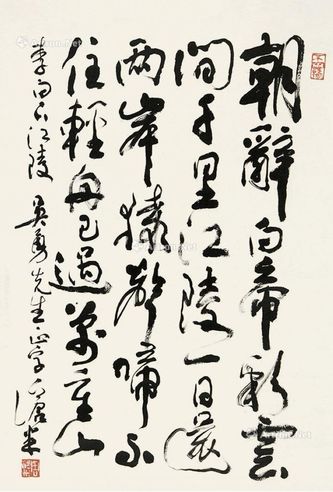 朝辭白帝彩雲
間千里江陵一日還
兩岸猿聲啼不
住輕舟已過萬重山
李白下江陵 吳勇先生正字